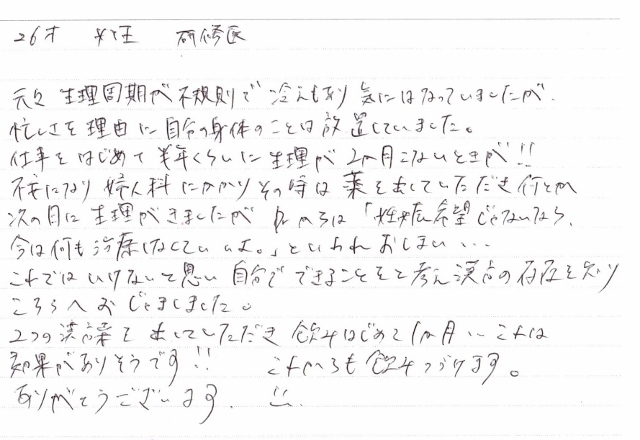 26才 女性 研修医
元々 生理周期が不規則で 冷えもあり 気にはなっていましたが、
忙しさを理由に 自分の身体のことは放置していました。
仕事をはじめて 半年くらいに 生理が 2か月こないときが!!
不安になり 婦人科にかかり その時は 薬を出していただき 何とか
次の月に 生理がきましたが Drからは 「妊娠希望じゃないなら、
今は何も治療しなくていいよ。」といわれおしまい...
これではいけないと思い 自分で できることをと考え漢方の存在を知り
こちらへ おじゃましました。
2つの漢方薬を 出していただき 飲みはじめて1か月.. これは
効果がありそうです!! これからも飲みつづけます。
ありがとうございます.